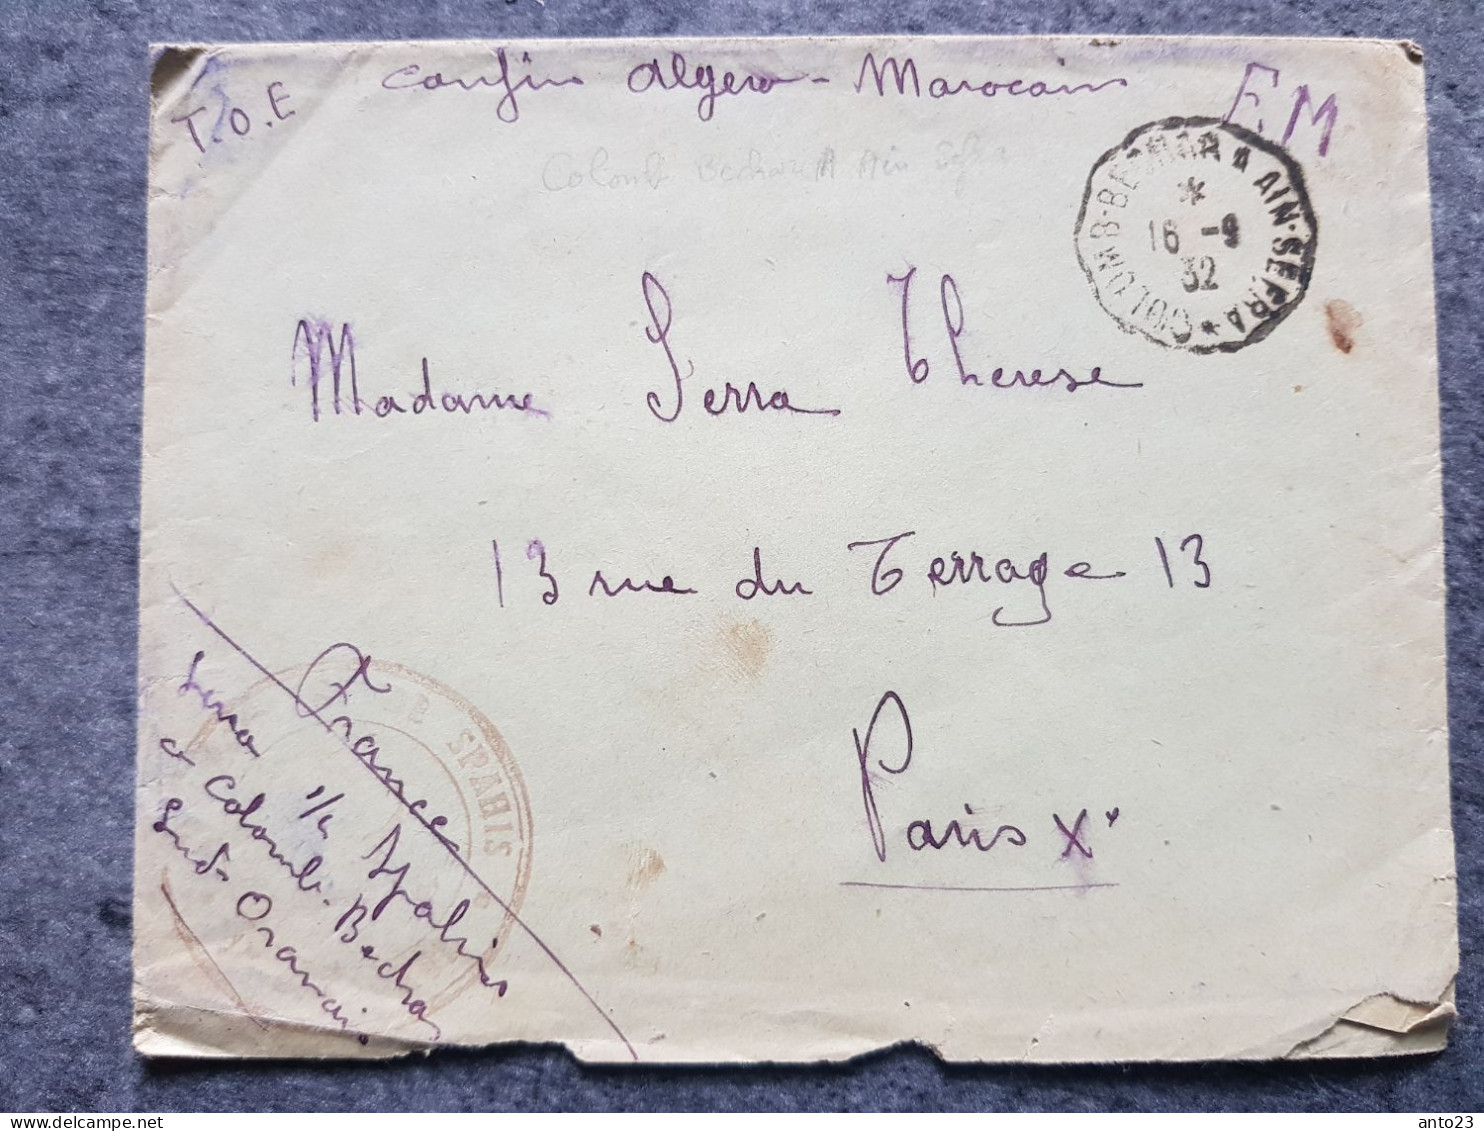 T.O.E
Confins Algero-Marocains
F.M
Colomb Bechar A Ain Sefra
COLOMB-BECHAR A AIN-SEFRA
16 -9
32
Madame Serra Therese
13 rue du Terrage 13
Paris Xe
France
SPAHIS
Serra
Spahis
a Colomb-Bechar
Sud-Oranais
anto23